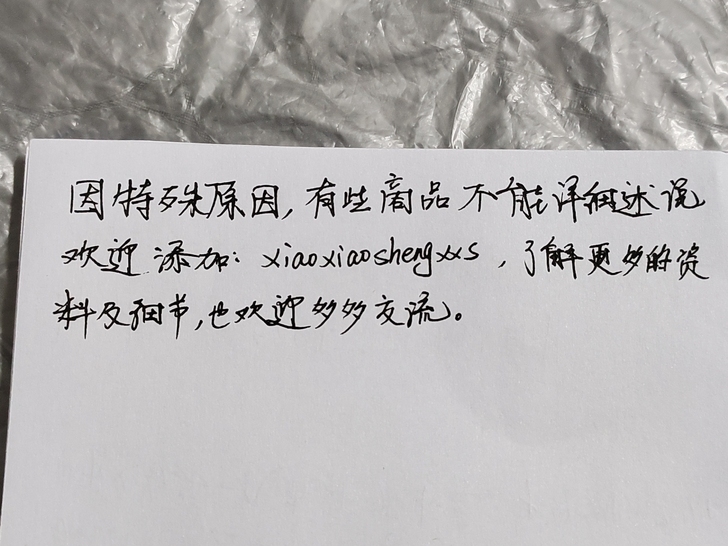 因特殊原因,有些商品不能详细述说
欢迎添加: xiaoxiaoshengxxs ,了解更多的资
料及细节,也欢迎多多交流。